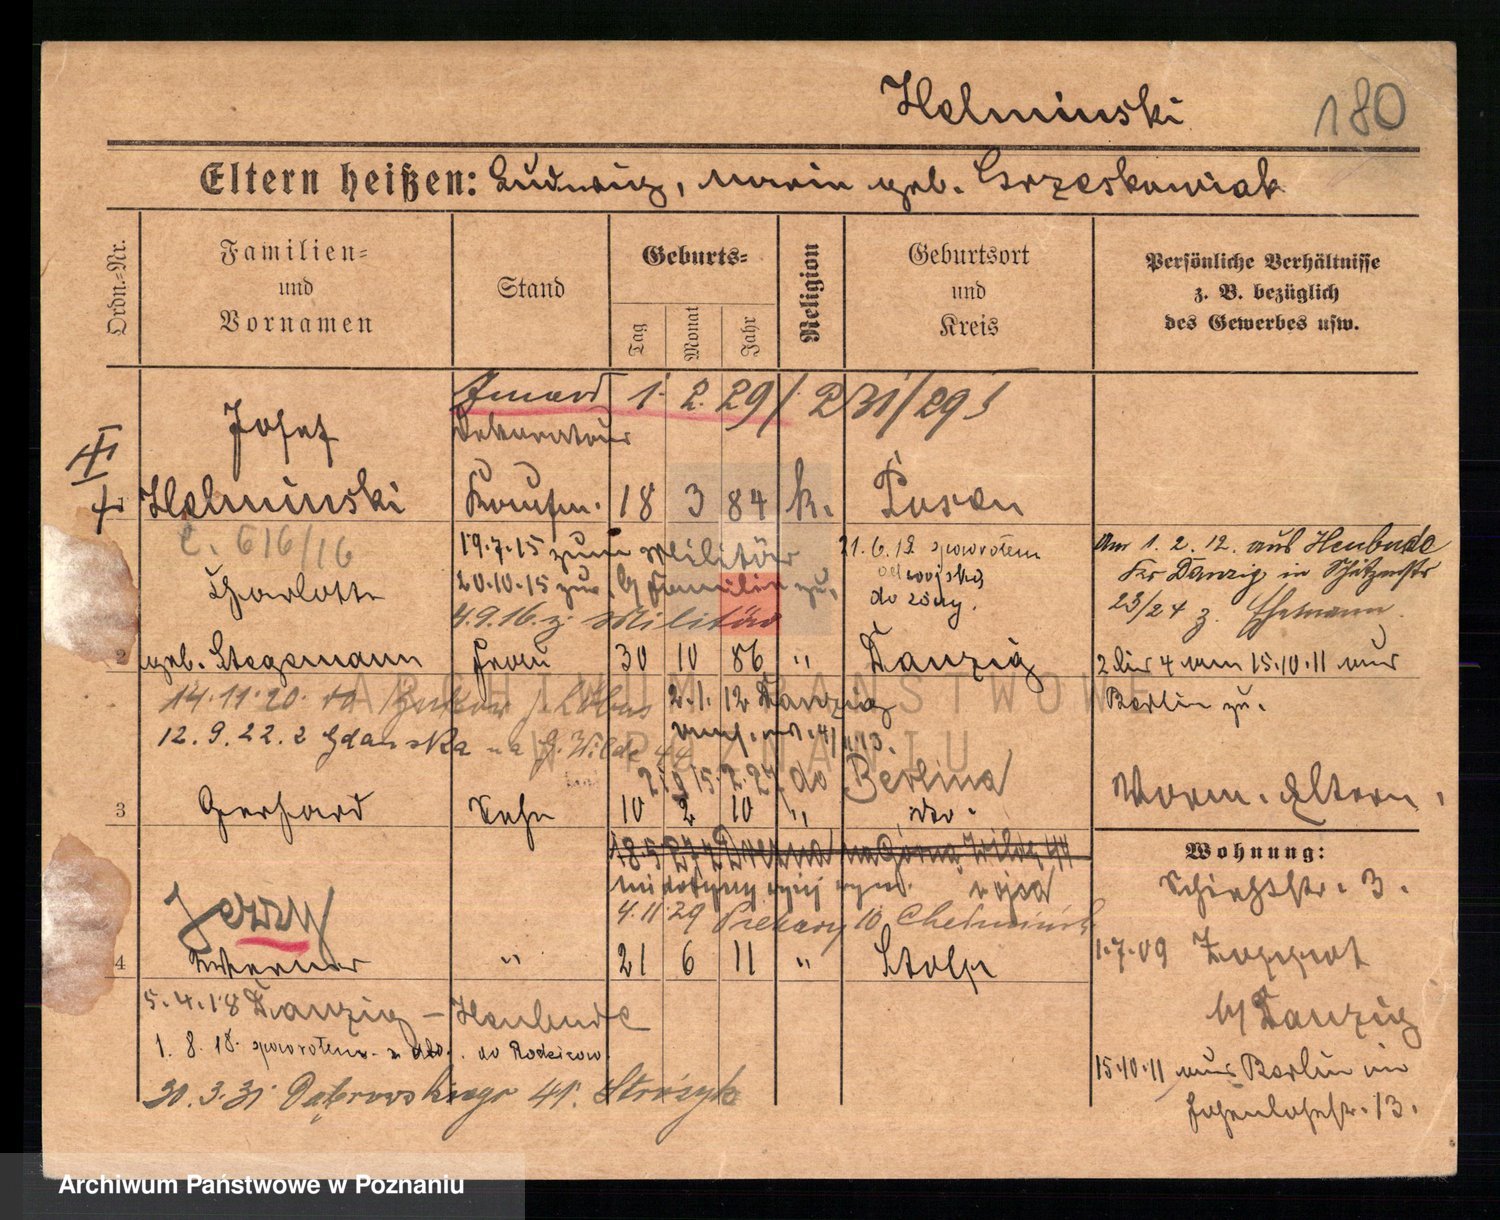 Helminski
180
Eltern heißen: Ludwig, Maria geb. Grzeskowiak
Ordn.-Nr.
Familien- und Vornamen
Stand
Geburts-
Tag
Monat
Jahr
Religion
Geburtsort und Kreis
Persönliche Verhältnisse z. B. bezüglich des Gewerbes usw.
Zmarł 1. 2. 29/ 231/29
Josef
Dekorateur
1 Helminski Kaufm. 18 3 84 k. Posen
C. 616/16
19.7.15 zum Militär
21.6.19 spowrotem
Am 1. 2. 12. aus Heubude
Charlotte
20.10.15 zur Familie zu.
do żony.
Krs Danzig in Schützenstr
4.9.16. z. Militär
23/24 z. Ehemann.
2 geb. Stegemann Frau 30 10 86 " Danzig
2 bis 4 am 15.10.11 aus
Berlin zu.
14.11.20.
2.1.12 Danzig
12.9.22. z Gdańska na G. Wilde 44
15.2.27 do Berlina
3 Gerhard Sohn 10 2 10 " do.
Vorm. Eltern.
Wohnung:
Schiehstr. 3.
Jerzy
4.11.29 Piekary 10
4 Werner " 21 6 11 " Stolp
1.7.09 Zoppot
b/ Danzig
5.4.18 Danzig - Heubude
1. 8. 18. spowrotem do Rodziców.
15.10.11 aus Berlin in
Hohenlohestr. 13.
30.3.31 Dąbrowskiego 41.
ARCHIWUM PAŃSTWOWE
W POZNANIU
Archiwum Państwowe w Poznaniu